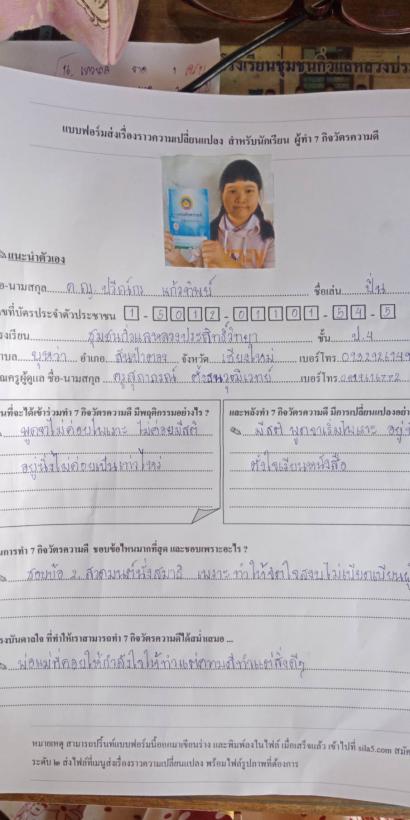 โรงเรียนชุมชนกิ่วแลหลวงประ
แบบฟอร์มส่งเรื่องราวความเปลี่ยนแปลง สำหรับนักเรียน ผู้ทำ 7 กิจวัตรความดี
แนะนำตัวเอง
อ-นามสกุล ด.ญ. แก้วทิพย์ ชื่อเล่น ปิ่น
ขที่บัตรประจำตัวประชาชน 1 - 5012 - 01101 - 54 - 5
งเรียน ชุมชนกิ่วแลหลวงประสิทธิ์วิทยา ชั้น ป.4
บล อำเภอ สันป่าตอง จังหวัด เชียงใหม่ เบอร์โทร
ณครูผู้ดูแล ชื่อ-นามสกุล ครูสุภาภรณ์ เบอร์โทร
นที่จะได้เข้าร่วมทำ 7 กิจวัตรความดี มีพฤติกรรมอย่างไร ?
พูดจาไม่ค่อยไพเราะ ไม่ค่อยมีสติ
อยู่นิ่งไม่ค่อยเป็น
และหลังทำ 7 กิจวัตรความดี มีการเปลี่ยนแปลงอย่า
มีสติ พูดจาเริ่มไพเราะ อยู่
ตั้งใจเรียนหนังสือ
นการทำ 7 กิจวัตรความดี ชอบข้อไหนมากที่สุด และชอบเพราะอะไร ?
ชอบข้อ 2. สวดมนต์นั่งสมาธิ เพราะทำให้จิตใจสงบไม่เบียดเบียนผู้
รงบันดาลใจ ที่ทำให้เราสามารถทำ 7 กิจวัตรความดีได้สม่ำเสมอ ...
พ่อแม่ที่คอยให้กำลังใจให้ทำแต่ความดีทำแต่สิ่งดีๆ
หมายเหตุ สามารถปริ้นท์แบบฟอร์มนี้ออกมาเขียนร่าง และพิมพ์ลงในไฟล์ เมื่อเสร็จแล้ว เข้าไปที่ sila5.com สมัค
ระดับ ๒ ส่งไฟล์ที่เมนูส่งเรื่องราวความเปลี่ยนแปลง พร้อมไฟล์รูปภาพที่ต้องการ